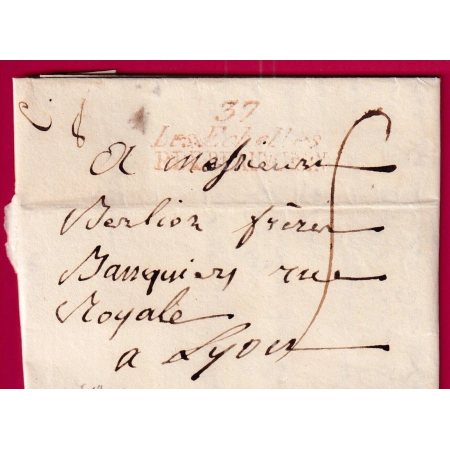 37
Les Echelles
A Messieurs
Berlion frères
Banquiers rue
Royale
a Lyon